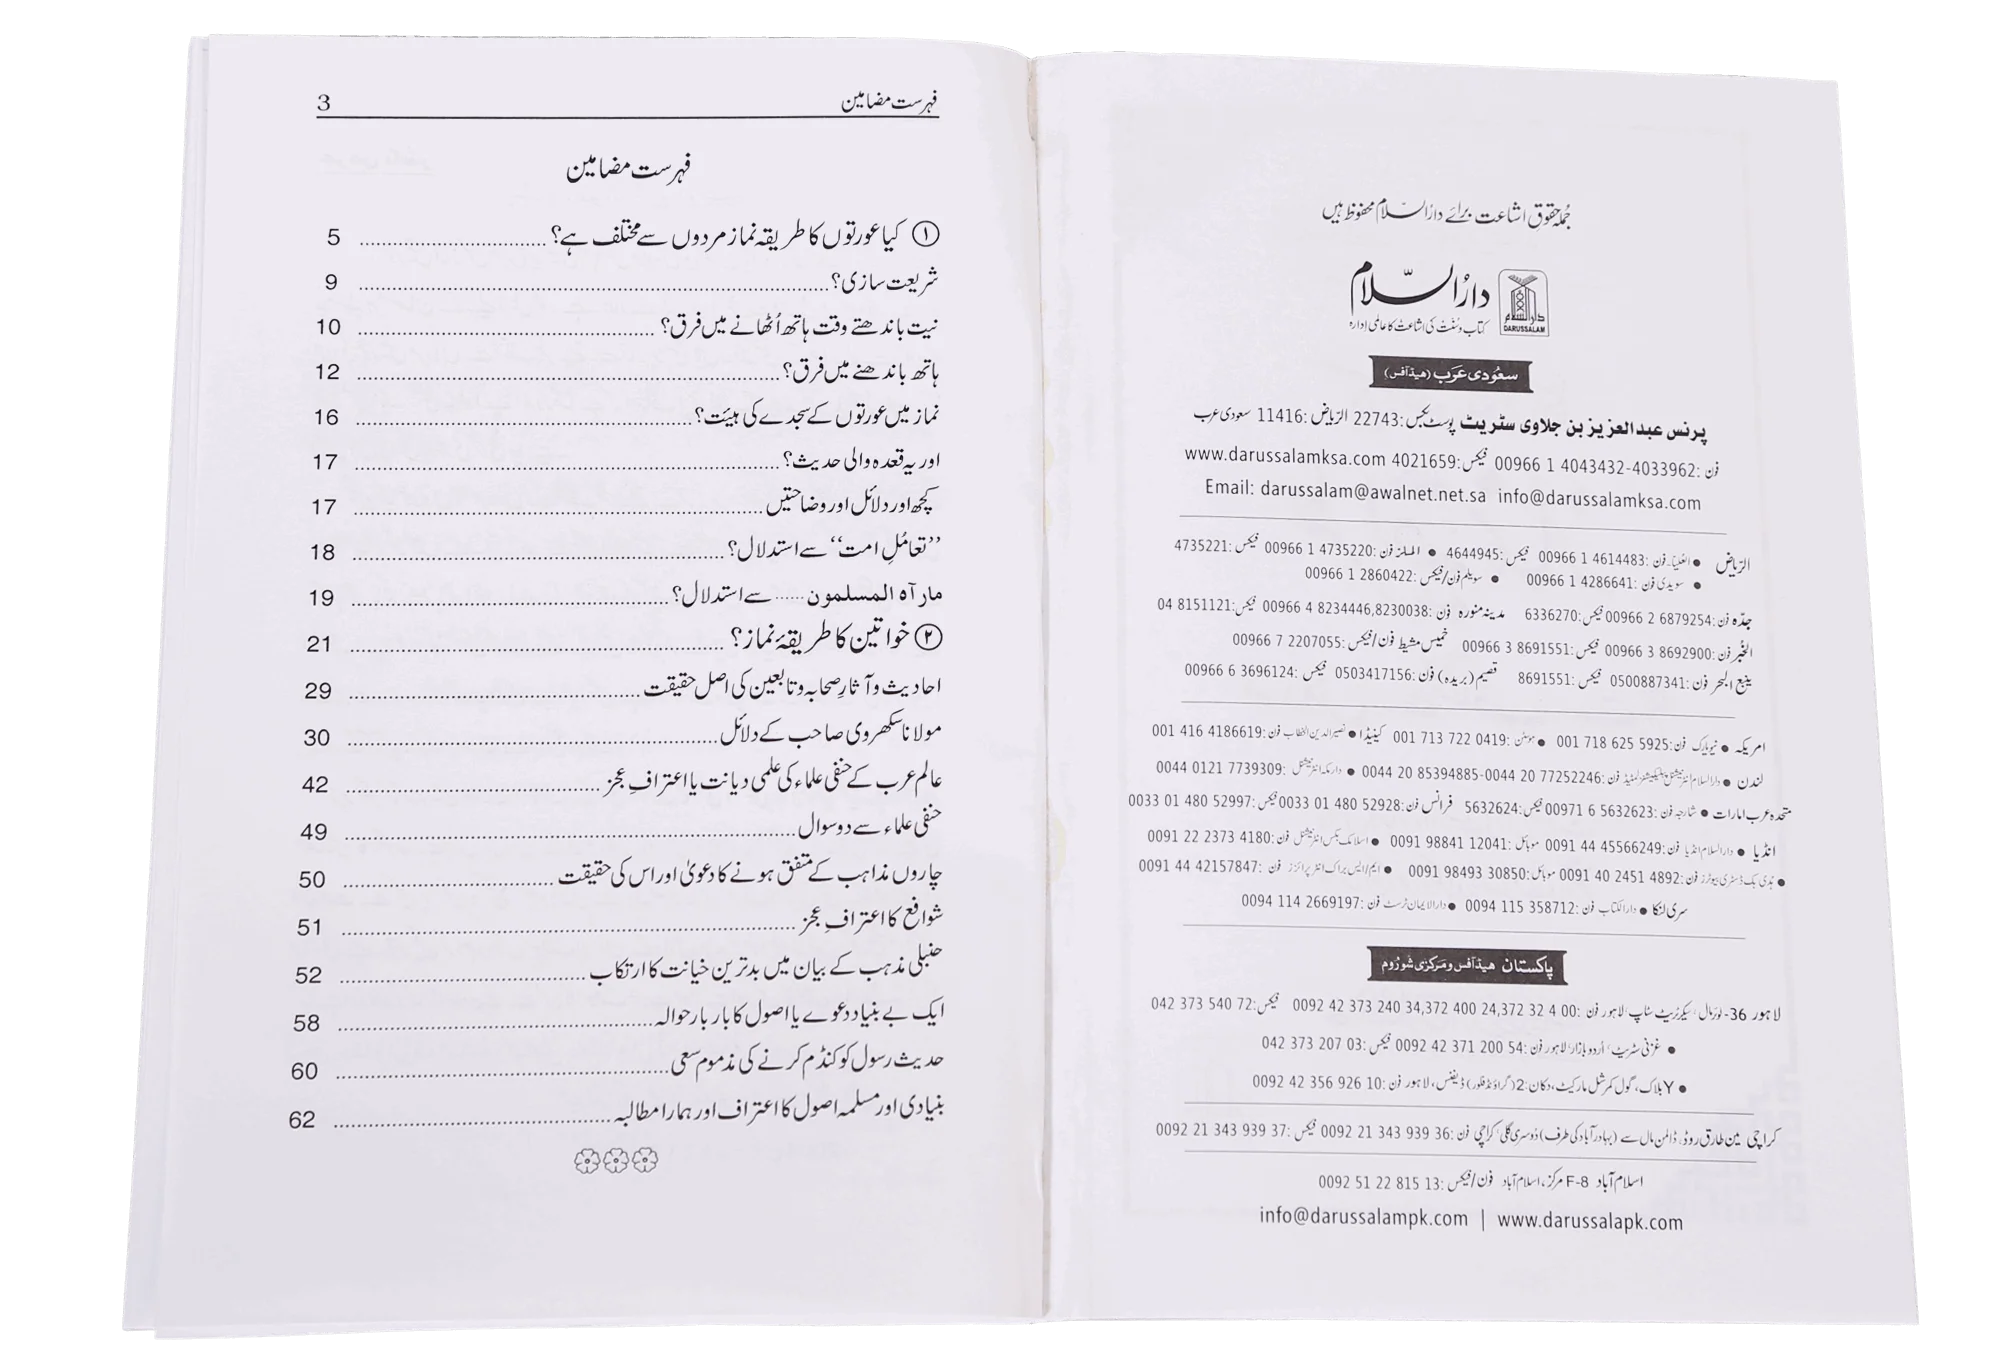 جملہ حقوق اشاعت برائے دارُالسّلام محفوظ ہیں
دارُالسّلام
دارالسلام
DARUSSALAM
کتاب و سُنّت کی اشاعت کا عالمی ادارہ
سعُودی عَرَب (ھیڈآفس)
پرنس عبدالعزیز بن جلاوی سٹریٹ پوسٹ بکس: 22743 الریاض: 11416 سعودی عرب
فون: 00966 1 4043432-4033962 فیکس: 4021659 www.darussalamksa.com
Email: darussalam@awalnet.net.sa info@darussalamksa.com
الریاض ● العُلیا۔ فون: 00966 1 4614483 فیکس: 4644945 ● الملز فون: 00966 1 4735220 فیکس: 4735221
● سویدی فون: 00966 1 4286641 ● سویلم فون/فیکس: 00966 1 2860422
جدّہ فون: 00966 2 6879254 فیکس: 6336270 مدینہ منورہ فون: 00966 4 8234446,8230038 فیکس: 04 8151121
الخُبر فون: 00966 3 8692900 فیکس: 00966 3 8691551 خمیس مشیط فون/فیکس: 00966 7 2207055
ینبع البحر فون: 0500887341 فیکس: 8691551 قصیم (بریدہ) فون: 0503417156 فیکس: 00966 6 3696124
امریکہ ● نیویارک فون: 001 718 625 5925 ● ہوسٹن: 001 713 722 0419 کینیڈا ● نصیرالدین الخطاب فون: 001 416 4186619
لندن ● دارالسلام انٹرنیشنل پبلیکیشنز لمیٹڈ فون: 0044 20 77252246-0044 20 85394885 ● دارمکہ انٹرنیشنل: 0044 0121 7739309
متحدہ عرب امارات ● شارجہ فون: 00971 6 5632623 فیکس: 5632624 فرانس فون: 0033 01 480 52928 فیکس: 0033 01 480 52997
انڈیا ● دارالسلام انڈیا فون: 0091 44 45566249 موبائل: 0091 98841 12041 ● اسلامک بکس انٹرنیشنل فون: 0091 22 2373 4180
● ہُدیٰ بک ڈسٹری بیوٹرز فون: 0091 40 2451 4892 موبائل: 0091 98493 30850 ● ایم/ایس براک انٹرپرائزز فون: 0091 44 42157847
سری لنکا ● دارالکتاب فون: 0094 115 358712 ● دارالایمان ٹرسٹ فون: 0094 114 2669197
پاکستان ھیڈآفس و مَرکزی شورُوم
لاہور 36- لوئرمال، سیکرٹریٹ سٹاپ، لاہور فون: 0092 42 373 240 34,372 400 24,372 32 4 00 فیکس: 042 373 540 72
● غزنی سٹریٹ، اُردو بازار، لاہور فون: 0092 42 371 200 54 فیکس: 042 373 207 03
● Y بلاک، گول کمرشل مارکیٹ، دکان: 2 (گراؤنڈ فلور) ڈیفنس، لاہور فون: 0092 42 356 926 10
کراچی مین طارق روڈ، ڈالمن مال سے (بہادرآباد کی طرف) دُوسری گلی، کراچی فون: 0092 21 343 939 36 فیکس: 0092 21 343 939 37
اسلام آباد F-8 مرکز، اسلام آباد فون/فیکس: 0092 51 22 815 13
info@darussalampk.com | www.darussalapk.com
فہرست مضامین 3
فہرست مضامین
① کیا عورتوں کا طریقہ نماز مردوں سے مختلف ہے؟ 5
شریعت سازی؟ 9
نیت باندھتے وقت ہاتھ اُٹھانے میں فرق؟ 10
ہاتھ باندھنے میں فرق؟ 12
نماز میں عورتوں کے سجدے کی ہیئت؟ 16
اور یہ قعدہ والی حدیث؟ 17
کچھ اور دلائل اور وضاحتیں 17
’’تعامُلِ امت‘‘ سے استدلال؟ 18
مارآہ المسلمون ...... سے استدلال؟ 19
② خواتین کا طریقۂ نماز؟ 21
احادیث و آثارِ صحابہ و تابعین کی اصل حقیقت 29
مولانا سکھروی صاحب کے دلائل 30
عالم عرب کے حنفی علماء کی علمی دیانت یا اعترافِ عجز 42
حنفی علماء سے دو سوال 49
چاروں مذاہب کے متفق ہونے کا دعویٰ اور اس کی حقیقت 50
شوافع کا اعترافِ عجز 51
حنبلی مذہب کے بیان میں بدترین خیانت کا ارتکاب 52
ایک بے بنیاد دعوے یا اصول کا بار بار حوالہ 58
حدیث رسول کو کنڈم کرنے کی مذموم سعی 60
بنیادی اور مسلمہ اصول کا اعتراف اور ہمارا مطالبہ 62